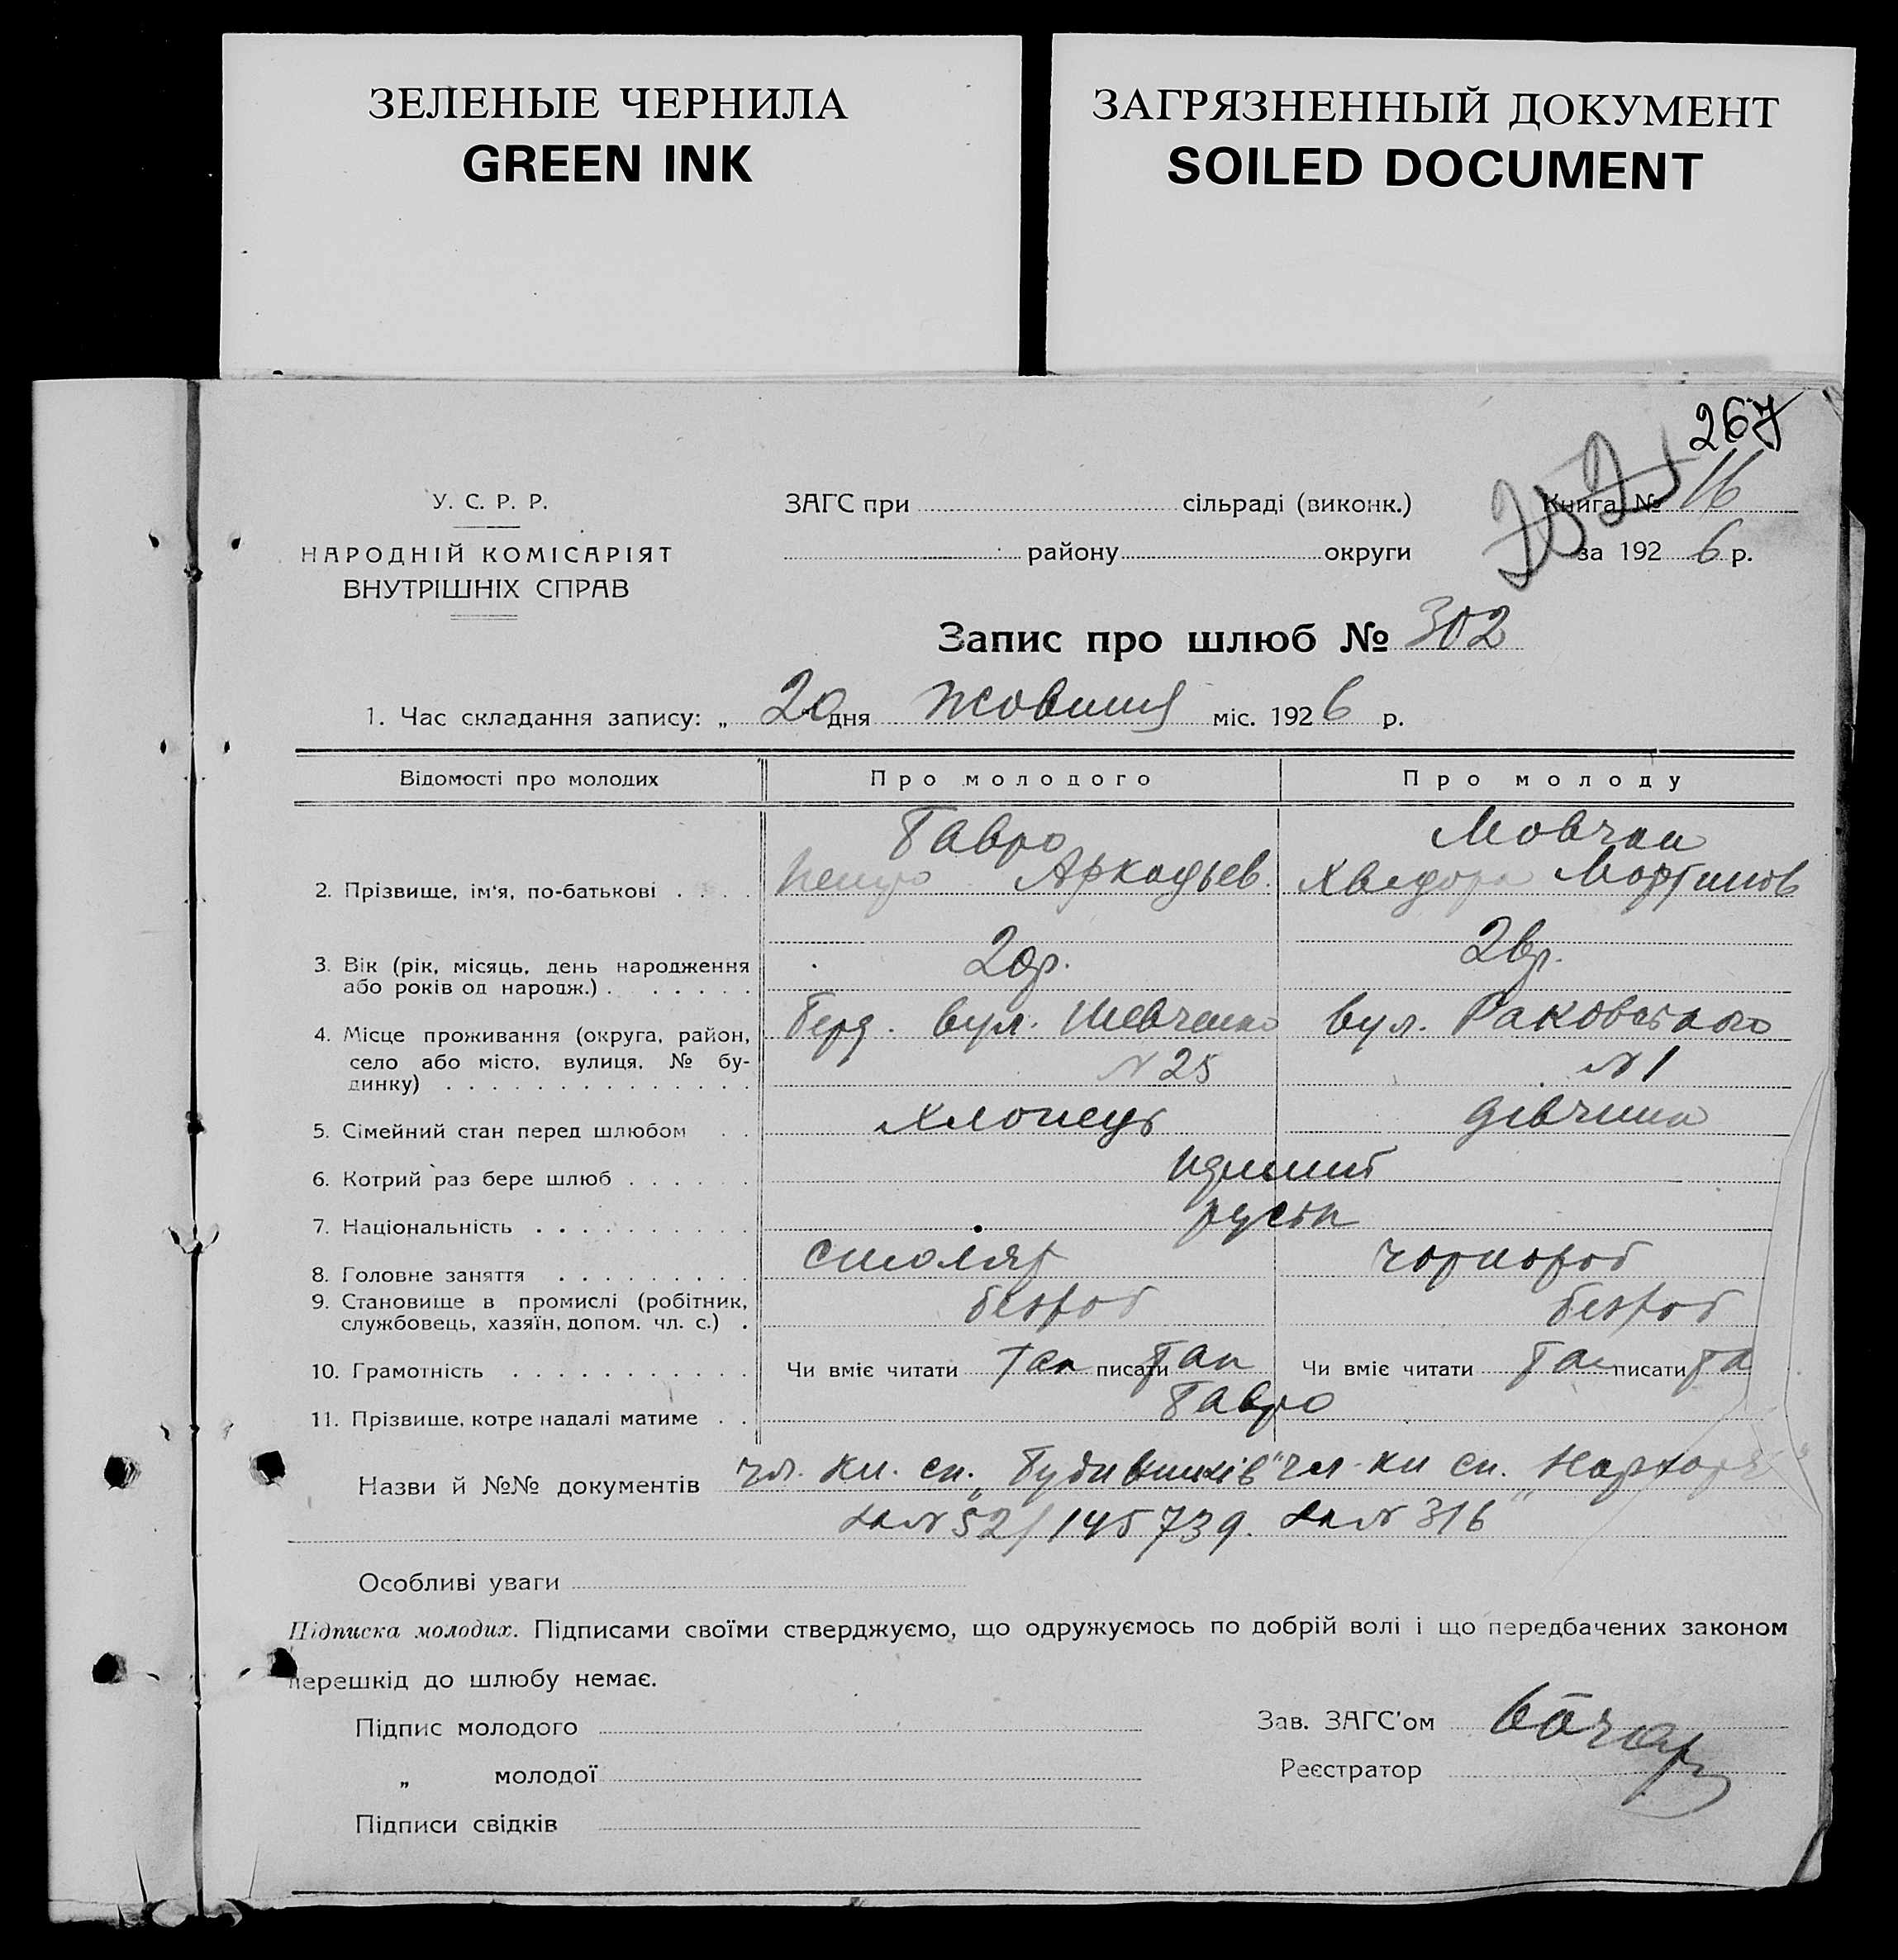 ЗЕЛЕНЫЕ ЧЕРНИЛА
GREEN INK
ЗАГРЯЗНЕННЫЙ ДОКУМЕНТ
SOILED DOCUMENT
267
У. С. Р. Р.
НАРОДНІЙ КОМІСАРІЯТ
ВНУТРІШНІХ СПРАВ
ЗАГС при сільраді (виконк.)
району округи
Книга № 16
за 1926 р.
Запис про шлюб № 302
1. Час складання запису: „ 20 " дня Жовтня міс. 1926 р.
Відомості про молодих Про молодого Про молоду
Гавро Мовчан
2. Прізвище, ім‘я, по-батькові . . . . Петро Аркадьев. Хведора Мартинов
3. Вік (рік, місяць, день народження 20р. 2вр.
або років од народж.) . . . . . .
4. Місце проживання (округа, район, Берд. вул. Шевченко вул. Раковского
село або місто, вулиця, № бу- № 25 № 1
динку) . . . . . . . . . . . . . .
5. Сімейний стан перед шлюбом . . хлопець дівчина
6. Котрий раз бере шлюб . . . . . .
7. Національність . . . . . . . . . .
8. Головне заняття . . . . . . . . . столяр чорнороб
9. Становище в промислі (робітник,
службовець, хазяїн, допом. чл. с.) . безроб безроб
10. Грамотність . . . . . . . . . . . Чи вміє читати Так писати Так Чи вміє читати Так писати Та
11. Прізвище, котре надалі матиме . . Гавро
Назви й №№ документів чл. кн. сп. „Будивників" чл. кн сп. „
за № 52/145739. за № 316
Особливі уваги
Підписка молодих. Підписами своїми стверджуємо, що одружуємось по добрій волі і що передбачених законом
перешкід до шлюбу немає.
Підпис молодого
„ молодої
Підписи свідків
Зав. ЗАГС'ом
Реєстратор